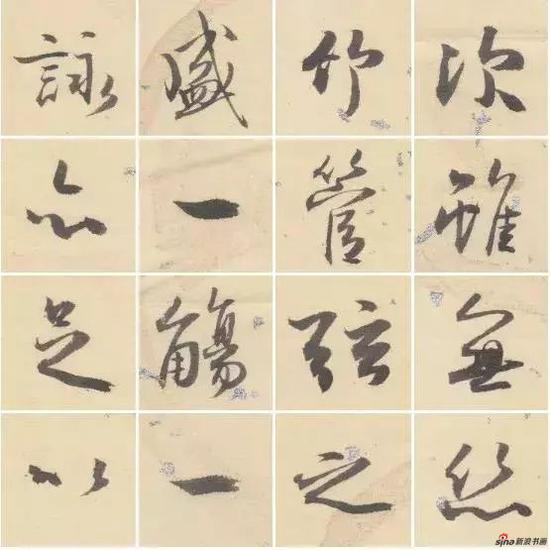 次雖無絲
竹管弦之
盛一觴一
詠亦足以
sina新浪书画